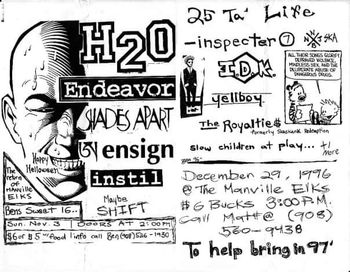 H2O
Endeavor
SHADES APART
ensign
instil
Happy Halloween
The return of MANVILLE ELKS
Maybe SHIFT
Bens Sweet 16..
Sun. Nov. 3 DOORS AT 2:00pm
$6 or $5 w/ food info call Ben (908) 526-1930
25 Ta' Life
-inspecter 7
SKA
ALL THEIR SONGS GLORIFY
DEPRAVED VIOLENCE,
MINDLESS SEX, AND THE
DELIBERATE ABUSE OF
DANGEROUS DRUGS.
yellboy
The Royaltie$
formerly Skankank Redemption
slow children at play...
+/More
December 29, 1996
@ The Manville Elks
$6 Bucks 3:00 P.M.
Call Matt@ (908)
560-9438
To help bring in 97'